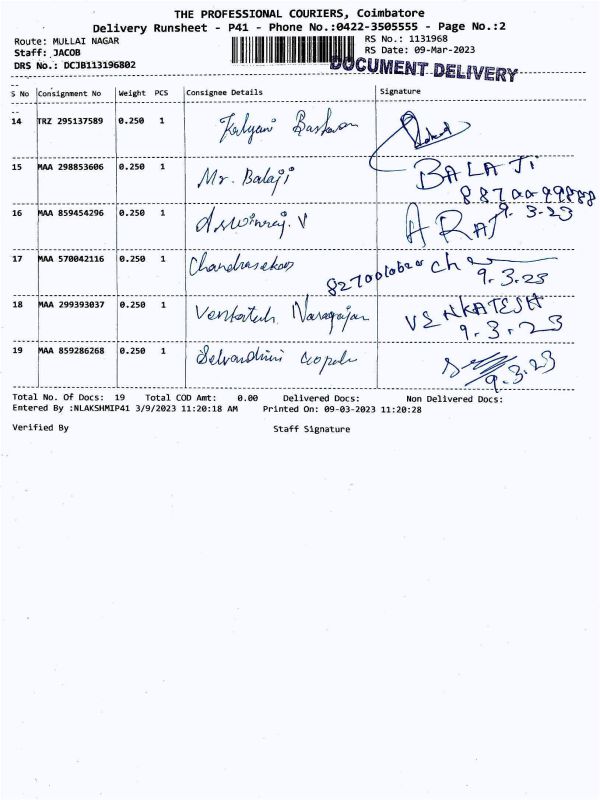 THE PROFESSIONAL COURIERS, Coimbatore
Delivery Runsheet - P41 - Phone No.:0422-3505555 - Page No.:2
Route: MULLAI NAGAR RS No.: 1131968
Staff: JACOB RS Date: 09-Mar-2023
DRS No.: DCJB113196802 DOCUMENT DELIVERY
S No Consignment No Weight PCS Consignee Details Signature
14 TRZ 295137589 0.250 1 Kalyani Baskaran
15 MAA 298853606 0.250 1 Mr. Balaji BALAJI
9. 3-23
16 MAA 859454296 0.250 1 Aswinraj. V A RAJ
17 MAA 570042116 0.250 1 Chandrasekar
9.3.23
18 MAA 299393037 0.250 1 Venkatesh VENKATESH
9.3.23
19 MAA 859286268 0.250 1
9.3.23
Total No. Of Docs: 19 Total COD Amt: 0.00 Delivered Docs: Non Delivered Docs:
Entered By :NLAKSHMIP41 3/9/2023 11:20:18 AM Printed On: 09-03-2023 11:20:28
Verified By Staff Signature